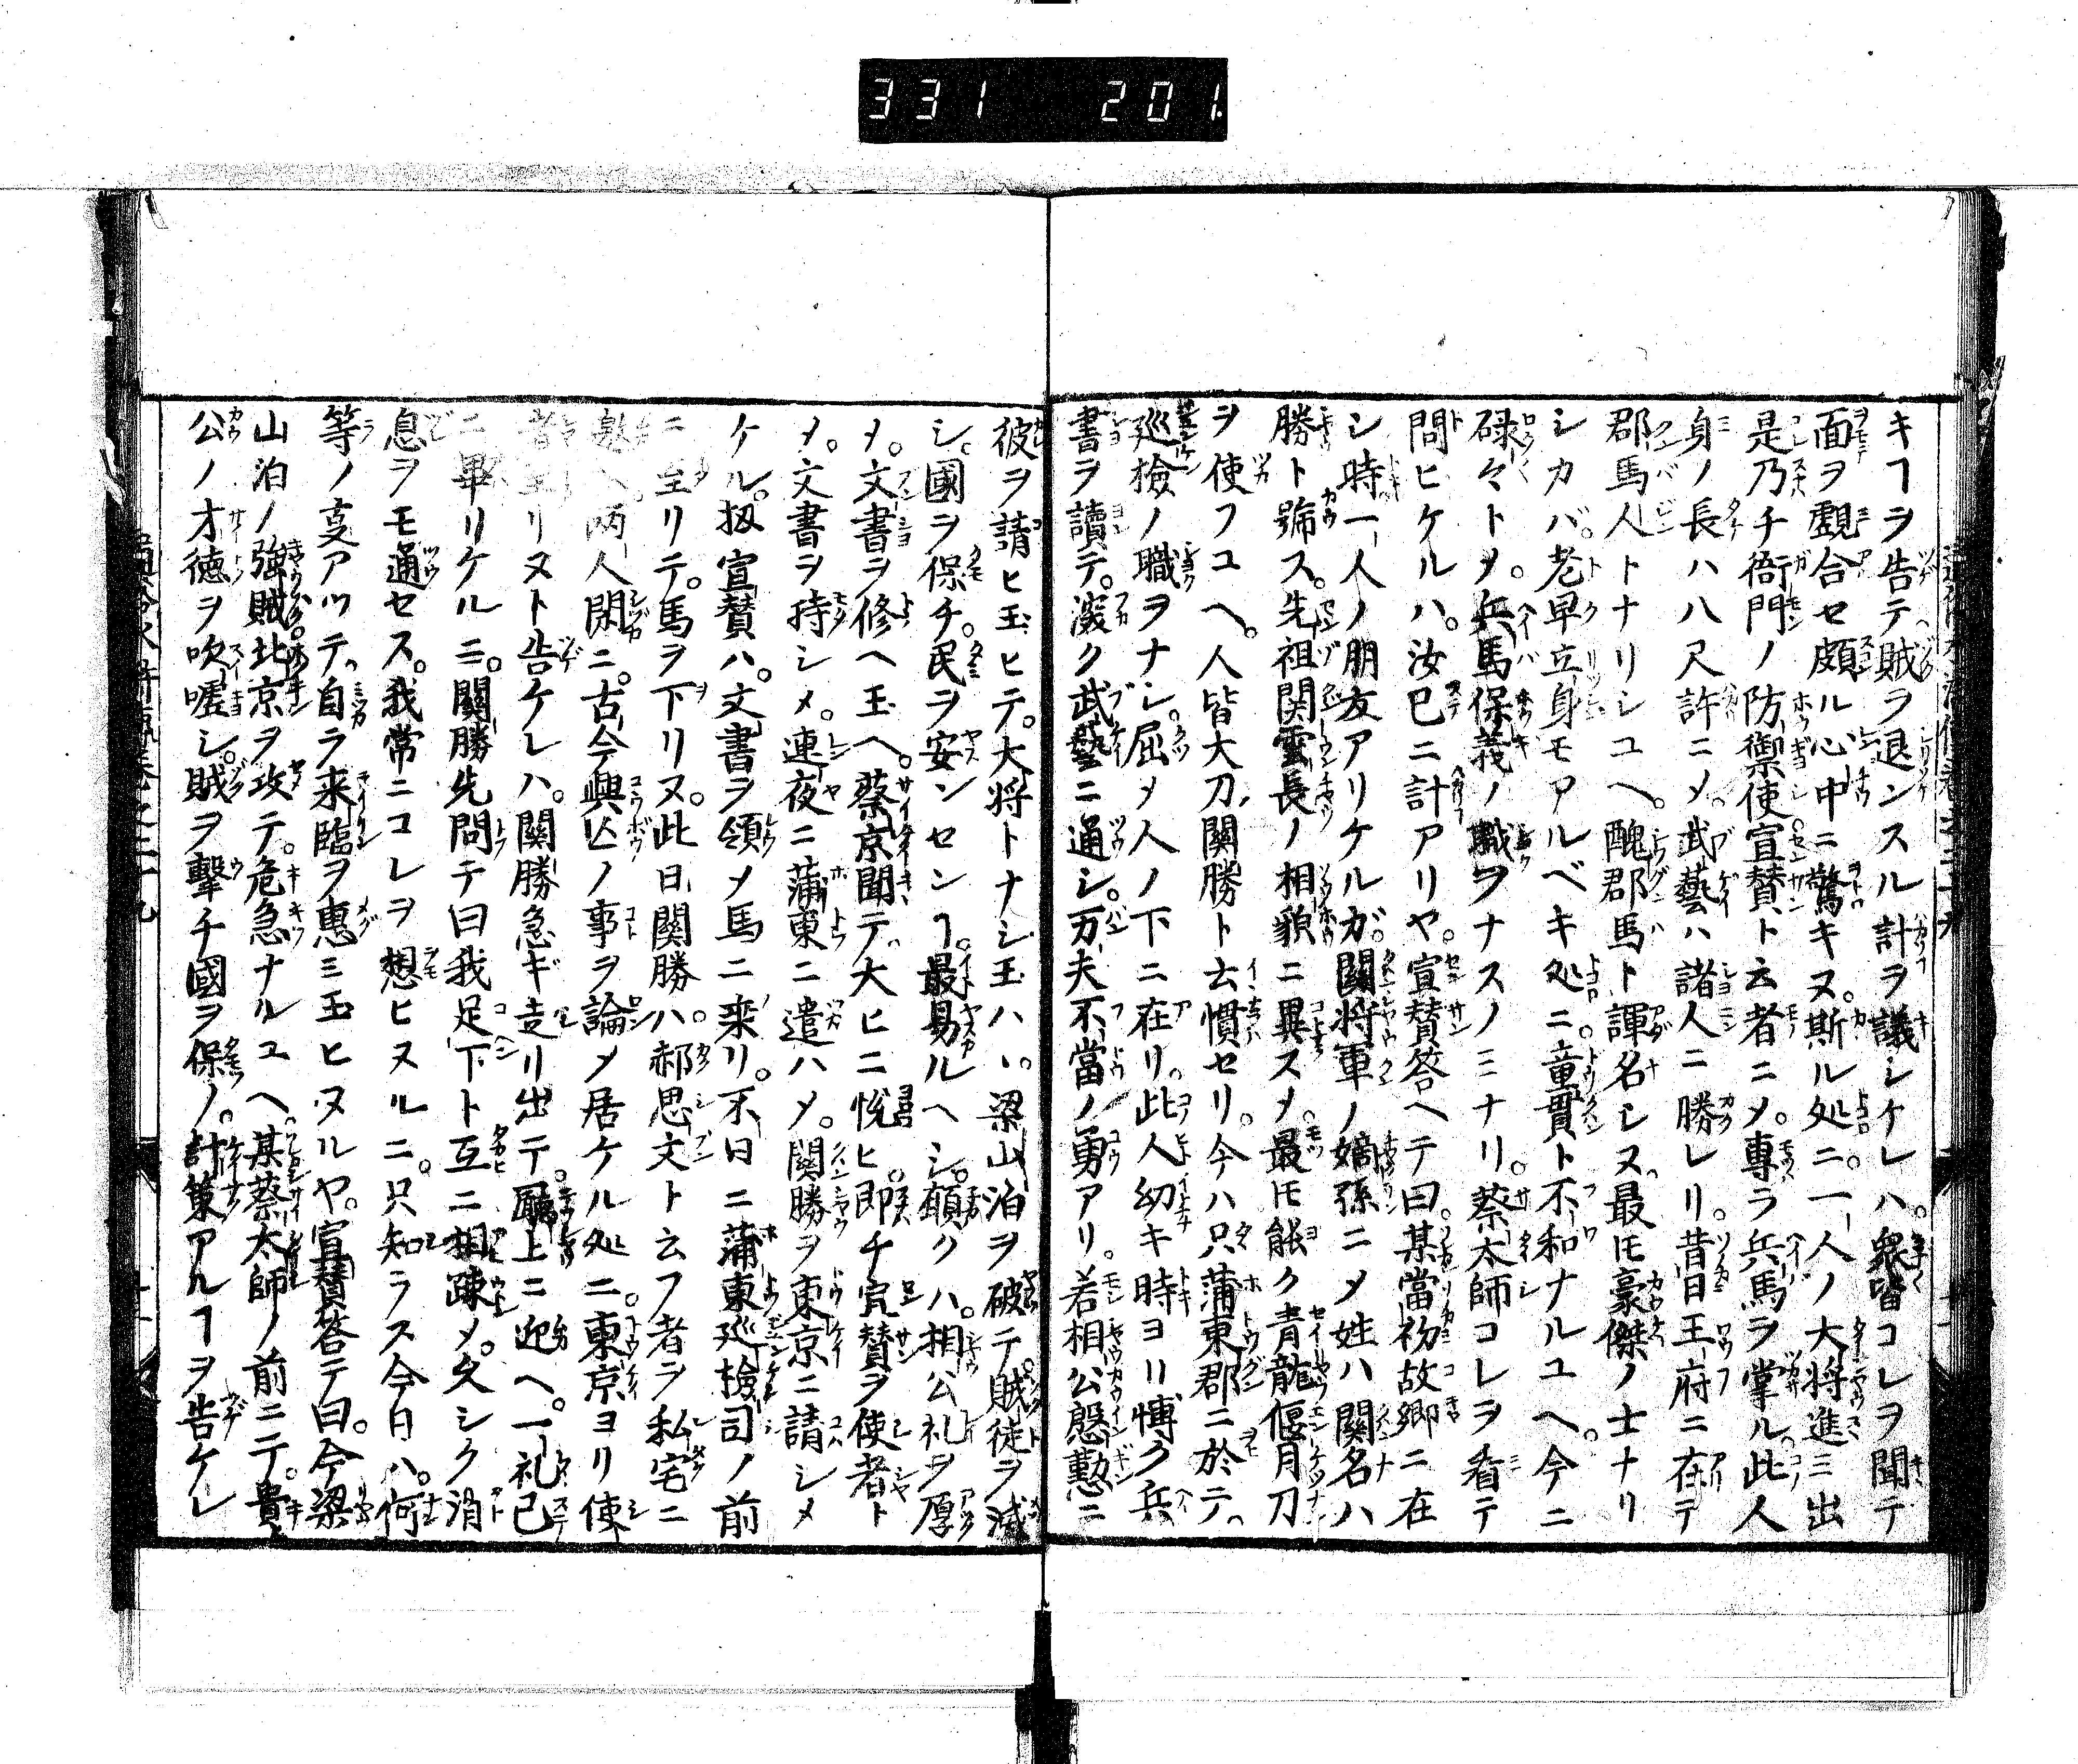 331 201
キヿヲ告テ賊ヲ退ンスル計ヲ議シケレハ。衆皆コレヲ聞テ
面ヲ覷合セ頗ル心中ニ驚キヌ。斯ル処ニ。一人ノ大将進ミ出
是乃チ衙門ノ防禦使。宣賛ト云者ニメ。專ラ兵馬ヲ掌ル。此人
身ノ長ハ八尺許ニメ。武藝ハ諸人ニ勝レリ。昔日王府ニ在テ
郡馬人トナリシユヘ。醜郡馬ト諢名シヌ。最モ豪傑ノ士ナリ
シカバ。老早立身モアルベキ処ニ。童貫ト不和ナルユヘ。今ニ
碌々トメ。兵馬保義ノ職ヲナスノミナリ。蔡太師コレヲ看テ
問ヒケルハ。汝已ニ計アリヤ。宣賛答ヘテ曰。某當初故郷ニ在
シ時一人ノ朋友アリケルガ。關将軍ノ嫡孫ニメ姓ハ関名ハ
勝ト號ス。先祖関雲長ノ相貌ニ異スメ。最モ能ク青龍偃月刀
ヲ使フユヘ。人皆大刀關勝ト云慣セリ。今ハ只蒲東郡ニ於テ。
巡檢ノ職ヲナシ。屈メ人ノ下ニ在リ。此人幼キ時ヨリ博ク兵
書ヲ讀テ。深ク武藝ニ通シ。万夫不當ノ勇アリ。若相公慇懃ニ
彼ヲ請ヒ玉ヒテ。大将トナシ玉ハヽ。梁山泊ヲ破テ。賊徒ヲ滅
シ。國ヲ保チ。民ヲ安ンセンヿ。最易ルヘシ。願クハ。相公礼ヲ厚
メ。文書ヲ修ヘ玉ヘ。蔡京聞テ。大ヒニ悦ヒ。即チ宣賛ヲ使者ト
メ。文書ヲ持シメ。連夜ニ蒲東ニ遣ハメ。関勝ヲ東京ニ請シメ
ケル。扨宣賛ハ。文書ヲ領メ馬ニ乗リ。不日ニ蒲東巡檢司ノ前
ニ至リテ。馬ヲ下リヌ。此日関勝ハ。郝思文ト云フ者ヲ私宅ニ
邀ヘ。両人閑ニ。古今興亡ノ事ヲ論メ居ケル処ニ。東京ヨリ使
者至リヌト告ケレハ。關勝急ギ走リ出テ。廳上ニ迎ヘ。一礼已
ニ畢リケルニ。關勝先問テ曰我足下ト互ニ相疎メ。久シク消
息ヲモ通セス。我常ニコレヲ想ヒヌルニ。只知ラス今日ハ。何
等ノ㕝アツテ。自ラ来臨ヲ惠ミ玉ヒヌルヤ。宣賛答テ曰。今梁
山泊ノ強賊北京ヲ攻テ。危急ナルユヘ。某蔡太師ノ前ニテ。貴
公ノ才徳ヲ吹嘘シ。賊ヲ擊チ國ヲ保ノ。計策アルヿヲ告ケレ